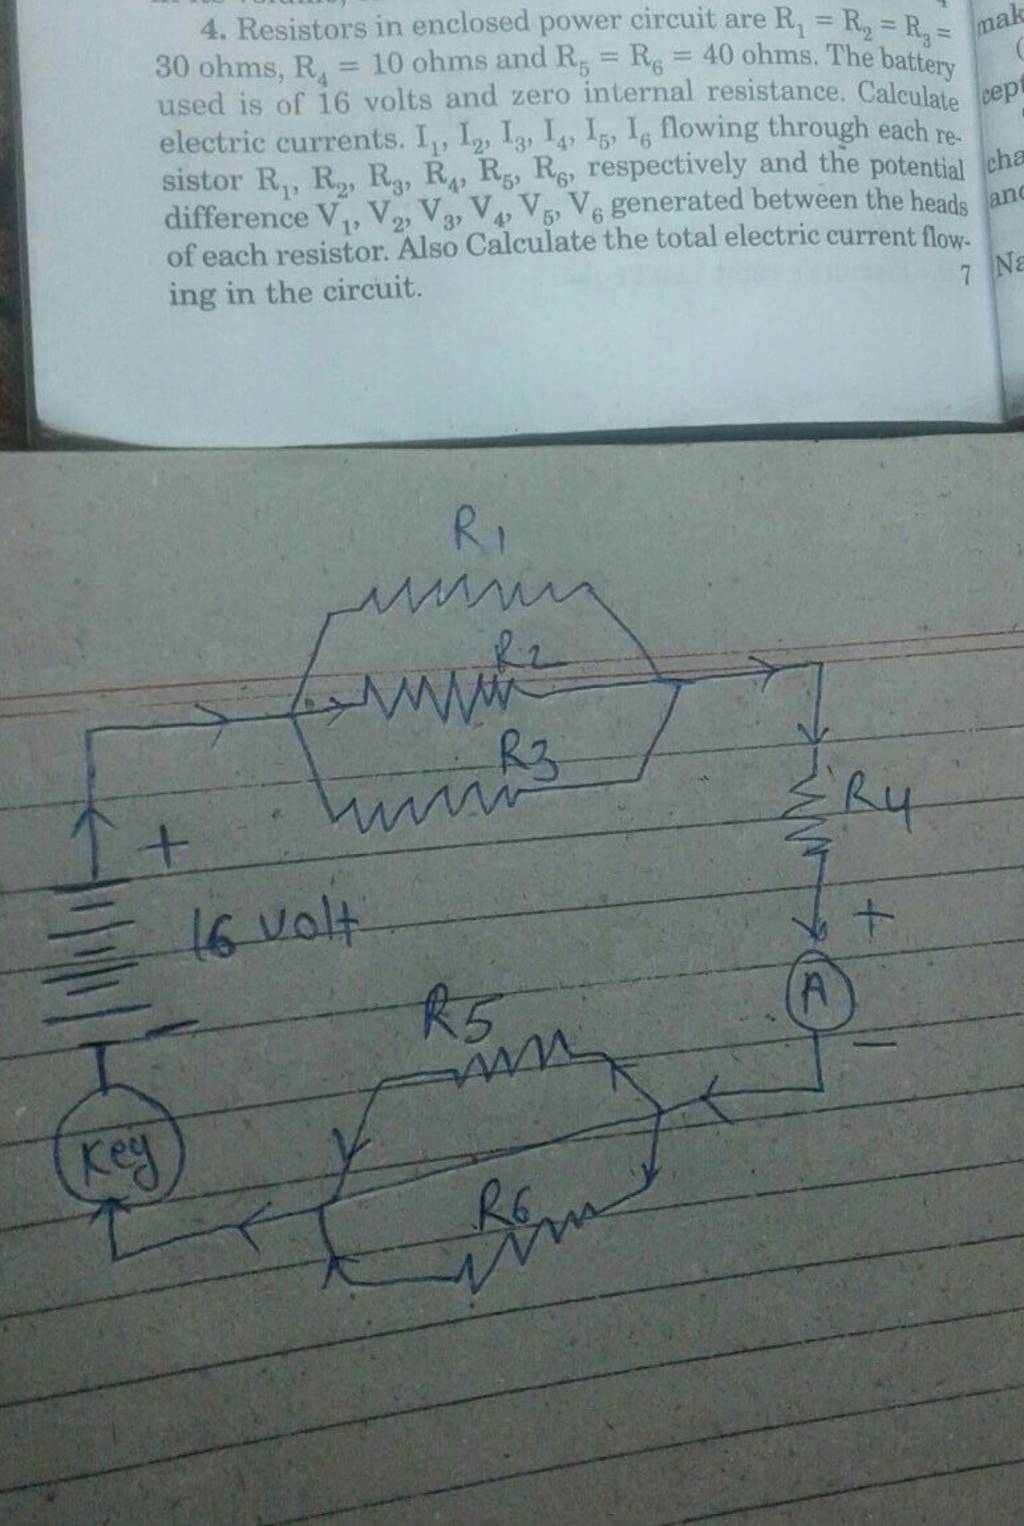 4. Resistors in enclosed power circuit are R₁ = R₂ = R₃ =
30 ohms, R₄ = 10 ohms and R₅ = R₆ = 40 ohms. The battery
used is of 16 volts and zero internal resistance. Calculate
electric currents. I₁, I₂, I₃, I₄, I₅, I₆ flowing through each re-
sistor R₁, R₂, R₃, R₄, R₅, R₆, respectively and the potential
difference V₁, V₂, V₃, V₄, V₅, V₆ generated between the heads
of each resistor. Also Calculate the total electric current flow-
ing in the circuit.
7
mak
cept
cha
and
Na
R1
R2
R3
R4
+
16 volt
+
A
R5
–
–
Key
R6